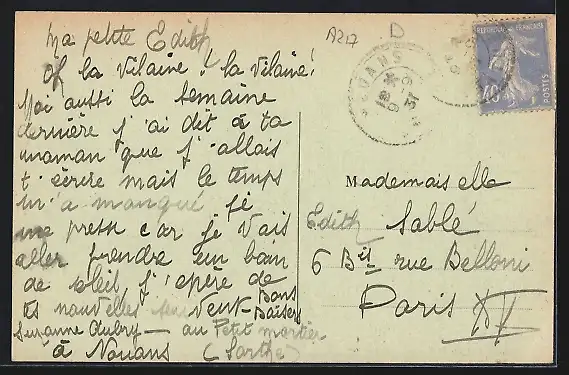 A217
D
Ma petite Edith
Oh la vilaine ! la vilaine !
Moi aussi la semaine
dernière j'ai dit à ta
maman que j'allais
t'écrire mais le temps
m'a manqué je
me presse car je vais
aller prendre un bain
de soleil, j'espère de
tes nouvelles
Bons
Baisers
Suzanne Aubry — au Petit mortier
à Nouans (Sarthe)
NOUANS
REPUBLIQUE FRANÇAISE
40c
POSTES
Mademoiselle
Edith Sablé
6 Bis rue Belloni
Paris XV